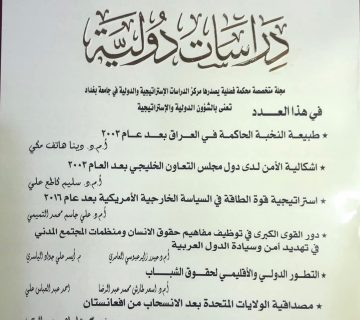 دراسات دولية
مجلة متخصصة محكمة فصلية يصدرها مركز الدراسات الإستراتيجية والدولية في جامعة بغداد
تعنى بالشؤون الدولية والإستراتيجية
في هذا العدد
* طبيعة النخبة الحاكمة في العراق بعد عام ٢٠٠٣
أ.م.د دينا هاتف مكي
* اشكالية الأمن لدى دول مجلس التعاون الخليجي بعد العام ٢٠٠٣
أ.م.د سليم كاطع علي
* استراتيجية قوة الطاقة في السياسة الخارجية الأمريكية بعد عام ٢٠١٦
أ.م.د علي جاسم محمد التميمي
* دور القوى الكبرى في توظيف مفاهيم حقوق الانسان ومنظمات المجتمع المدني
في تهديد أمن وسيادة الدول العربية
أ.م.د حيدر زاير عبوسي العامري م. أيسر علي جواد الياسري
* التطور الدولي والأقليمي لحقوق الشباب
أ.م.د اسعد طارش عبد الرضا احمد عبد العباس علي
* مصداقية الولايات المتحدة بعد الانسحاب من افغانستان